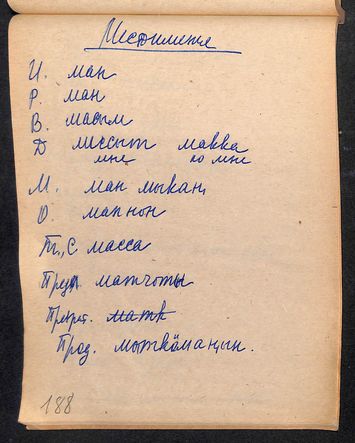 Местоимения
И. ман
Р. ман
В. масым
Д миссыт мавва
мне ко мне
М. ман мыкан,
О. ман нон
Тв., С. масса
Пред. матчоты
Преврт. матк
Прод. мыткöманын.
188